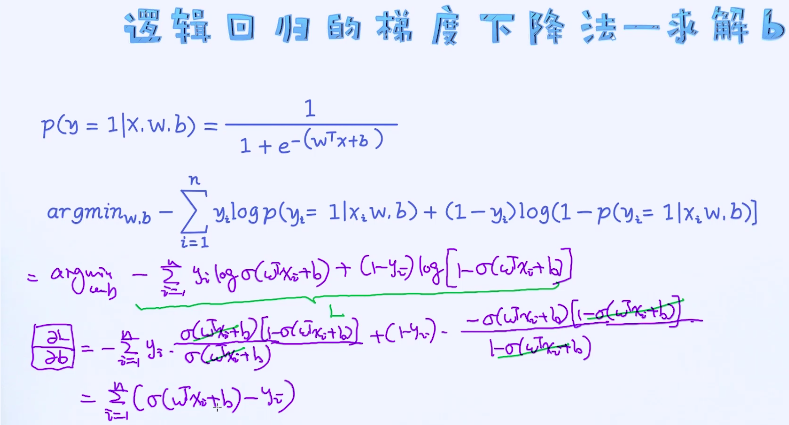 逻辑回归的梯度下降法—求解b
p(y = 1|x.w.b) = 1 / (1 + e^-(wᵀx+b))
argmin_w,b − ∑_{i=1}^{n} yᵢlogp(yᵢ= 1|xᵢw,b) + (1−yᵢ)log(1−p(yᵢ= 1|xᵢw,b)]
= argmin_w-b − ∑_{i=1}^{n} yᵢ log σ(wᵀxᵢ+b) + (1−yᵢ) log[1−σ(wᵀxᵢ+b)]
L
∂L/∂b = −∑_{i=1}^{n} yᵢ · σ(wᵀxᵢ+b)[1−σ(wᵀxᵢ+b)] / σ(wᵀxᵢ+b) + (1−yᵢ) · −σ(wᵀxᵢ+b)[1−σ(wᵀxᵢ+b)] / 1−σ(wᵀxᵢ+b)
= ∑_{i=1}^{n} (σ(wᵀxᵢ+b)−yᵢ)